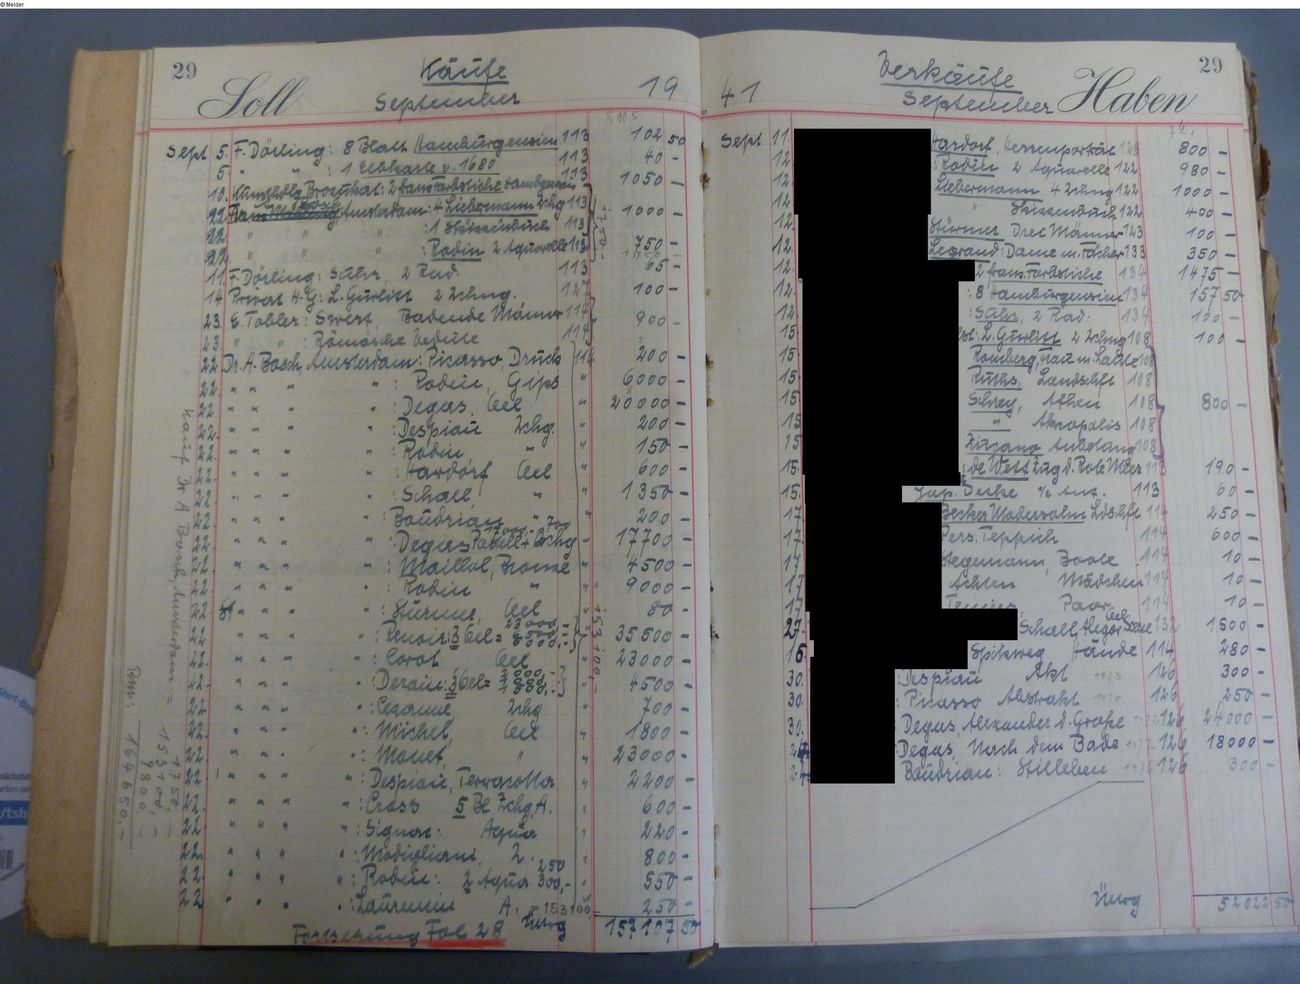 © Melder
29
Soll
Käufe
September
19
Sept 5. F. Dörling: 8 Blatt Hamburgensien 113 102 50
5 " " : 1 Seekarte v. 1680 113 40 -
10. Kunsthdlg. : 2 franz. Farbstiche 113 1050 -
22 Amsterdam: 4 Liebermann Zchng 113 1000 -
22 " " " : 1 Skizzenbuch 113
22 " " " : Rodin 2 Aquarelle 113 750 -
11. F. Dörling: 2 Rad. 113 65 -
14 Privat H.G: L. Gurlitt 2 Zchng. 127 100 -
23 E. Tobler: Badende Männer 114 900 -
23 " " : Römische Vedute 114
22 Dr. A. Bosch Amsterdam: Picasso, Druck 114 200 -
22 " " " " : Rodin, Gips " 6000 -
22 " " " " : Degas Oel " 20000 -
22. " " " " : Despiau Zchg. " 200 -
22. " " " " : Rodin " 150 -
22. " " " " : Hardorf Oel " 600 -
22. " " " " : Schall " " 1350 -
22 " " " " : Baudrian " " 200 -
22 " " " " : Degas Pastell + Zchg " 17700 -
22. " " " " : Maillol, Bronze " 4500 -
22 " " " " : Rodin " " 9000 -
22 " " " " : Stürmer, Oel " 80 -
22. " " " " : Renoir: 3 Oel = " 35500 -
22. " " " " : Corot Oel " 23000 -
22 " " " " : Derain: 3 Oel = " 4500 -
22 " " " " : Cezanne Zchg " 700 -
22 " " " " : Michel, Oel " 1800 -
22 " " " " : Monet, " " 23000 -
22 " " " " : Despiau, Terracotta " 2200 -
22 " " " " : Cross 5 Bl Zchg, A. " 600 -
22 " " " " : Signac: Aqua " 220 -
22. " " " " : Modigliani, Z. " 800 -
22 " " " " : Rodin: 2 Aqua 250 300,- " 550 -
22 " " " " : Laurencin A. = 153100 250 -
Fortsetzung Fol 28 Übrg 157107 50
1750,-
153100,-
Kauf Dr A Bosch, Amsterdam =
1750,-
153100,-
9800,-
Rm: 164.650,-
41
Verkäufe
September
Haben
29
Sept 11. Hardorf, Herrenporträt 800 -
12. Rodin 2 Aquarelle 122 980 -
12. Liebermann 4 Zchng 122 1000 -
12 " Skizzenbuch 122 400 -
12. Stürmer Drei Männer 123 100 -
12. Legrand: Dame m. Fächer 133 350 -
12. 2 franz. Farbstiche 134 1475 -
12. : 8 Hamburgensien 134 157 50
12 : 2 Rad. 134 100 -
15 : L. Gurlitt 2 Zchng 108 100 -
15. 108
15. Ruths, Landschft 108
15. Athen 108 800 -
15 " Akropolis 108
15 108
15. : de Wett Zug d. Rote Meer 113 190 -
15. Jap. 113 60 -
17. Becker Modersohn Ldschft 114 250 -
17. Pers. Teppich 114 600 -
17 Hegemann, Boote 114 10 -
17 Achten Mädchen 114 10 -
17. Paar 114 10 -
27. Schall, Oel 132 1500 -
16. Spitzweg Hände 114 280 -
30. : Despiau Akt 126 300 -
30. : Picasso Abstrakt 126 250 -
30. Degas, Alexander d. Große 126 24000 -
Degas, Nach dem Bade 126 18000 -
Baudrian: Stilleben 126 300 -
Übrg 52022 50